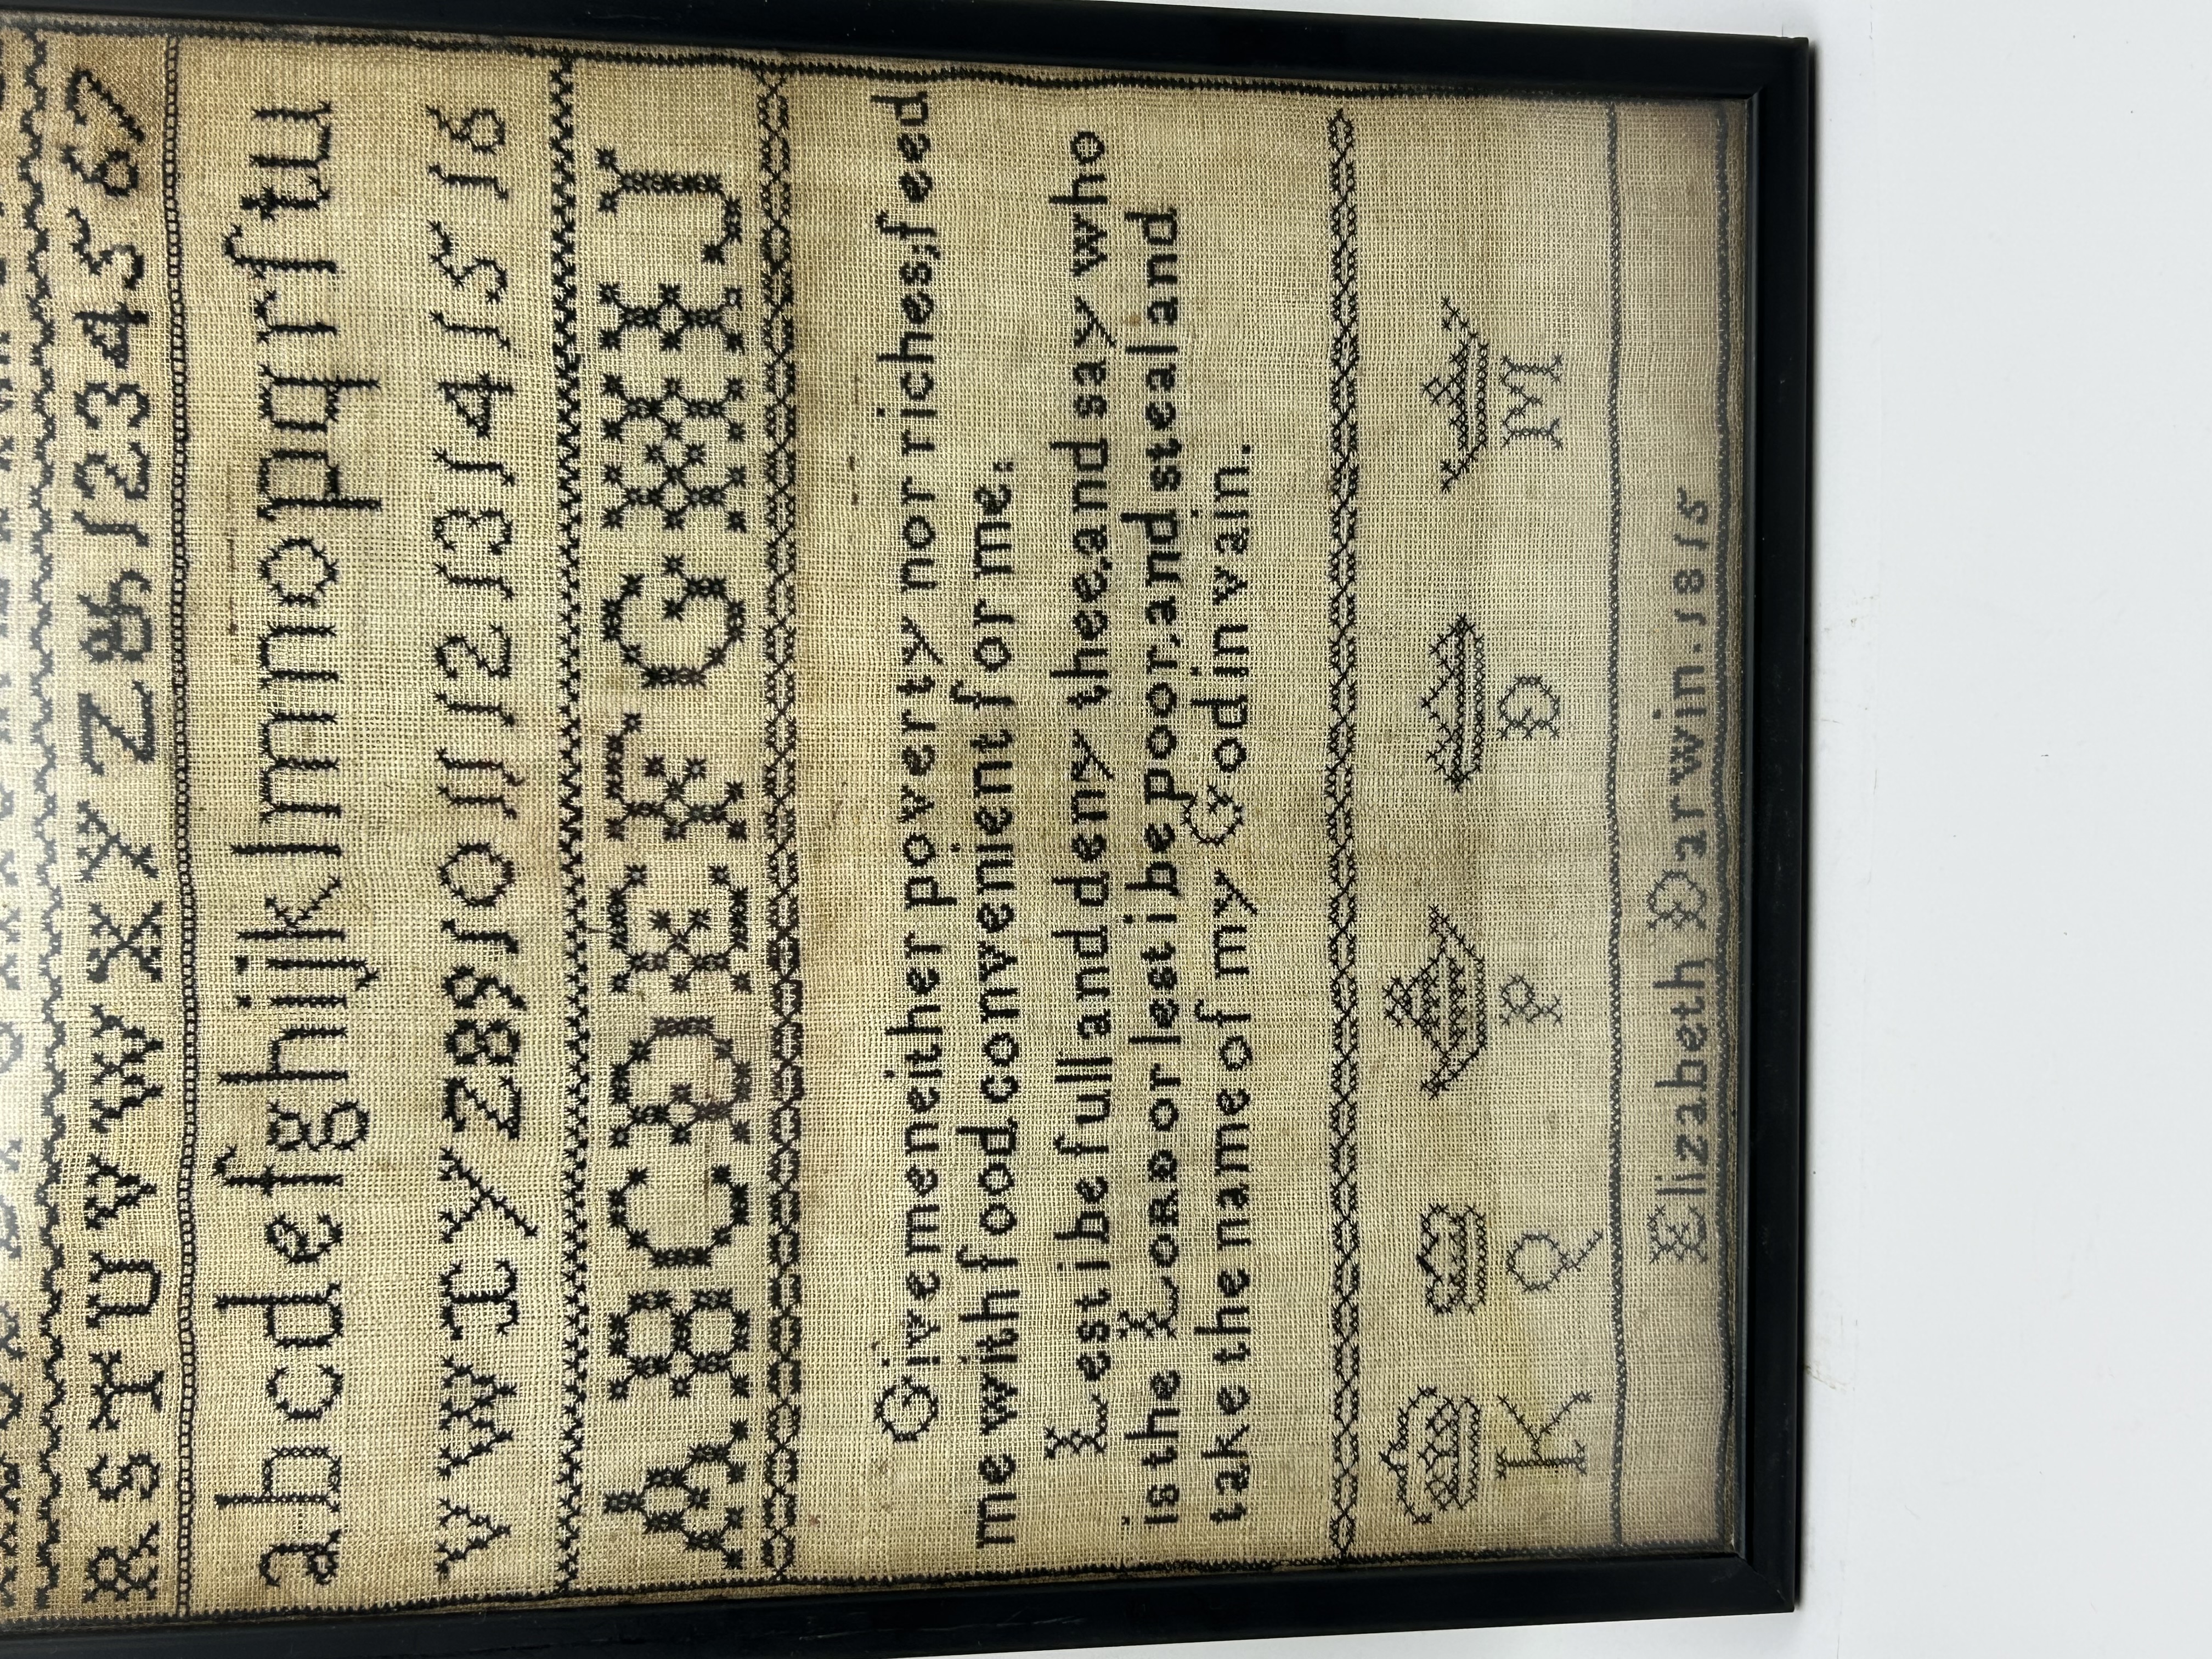 R S T U V W X Y Z & 1 2 3 4 5 6 7
a b c d e f g h i j k l m n o p q r ſ t u
v w x y z 8 9 10 11 12 13 14 15 16
A B C D E F G H I J
Give me neither poverty nor riches; feed
me with food convenient for me.
Lest i be full and deny thee, and say who
is the LORD or lest i be poor, and steal and
take the name of my God in vain.
K Q P D M
Elizabeth Darwin. 1815